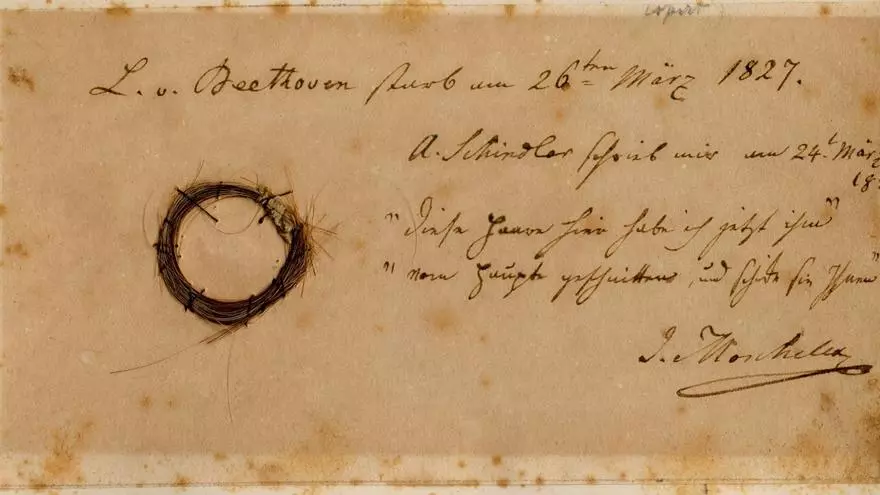 L. v. Beethoven starb am 26ten März 1827.
A. Schindler schrieb mir am 24t März
18
"diese Haare hier habe ich jetzt ihm"
"vom Haupte geschnitten, und schicke sie Ihnen"
I. Moscheles